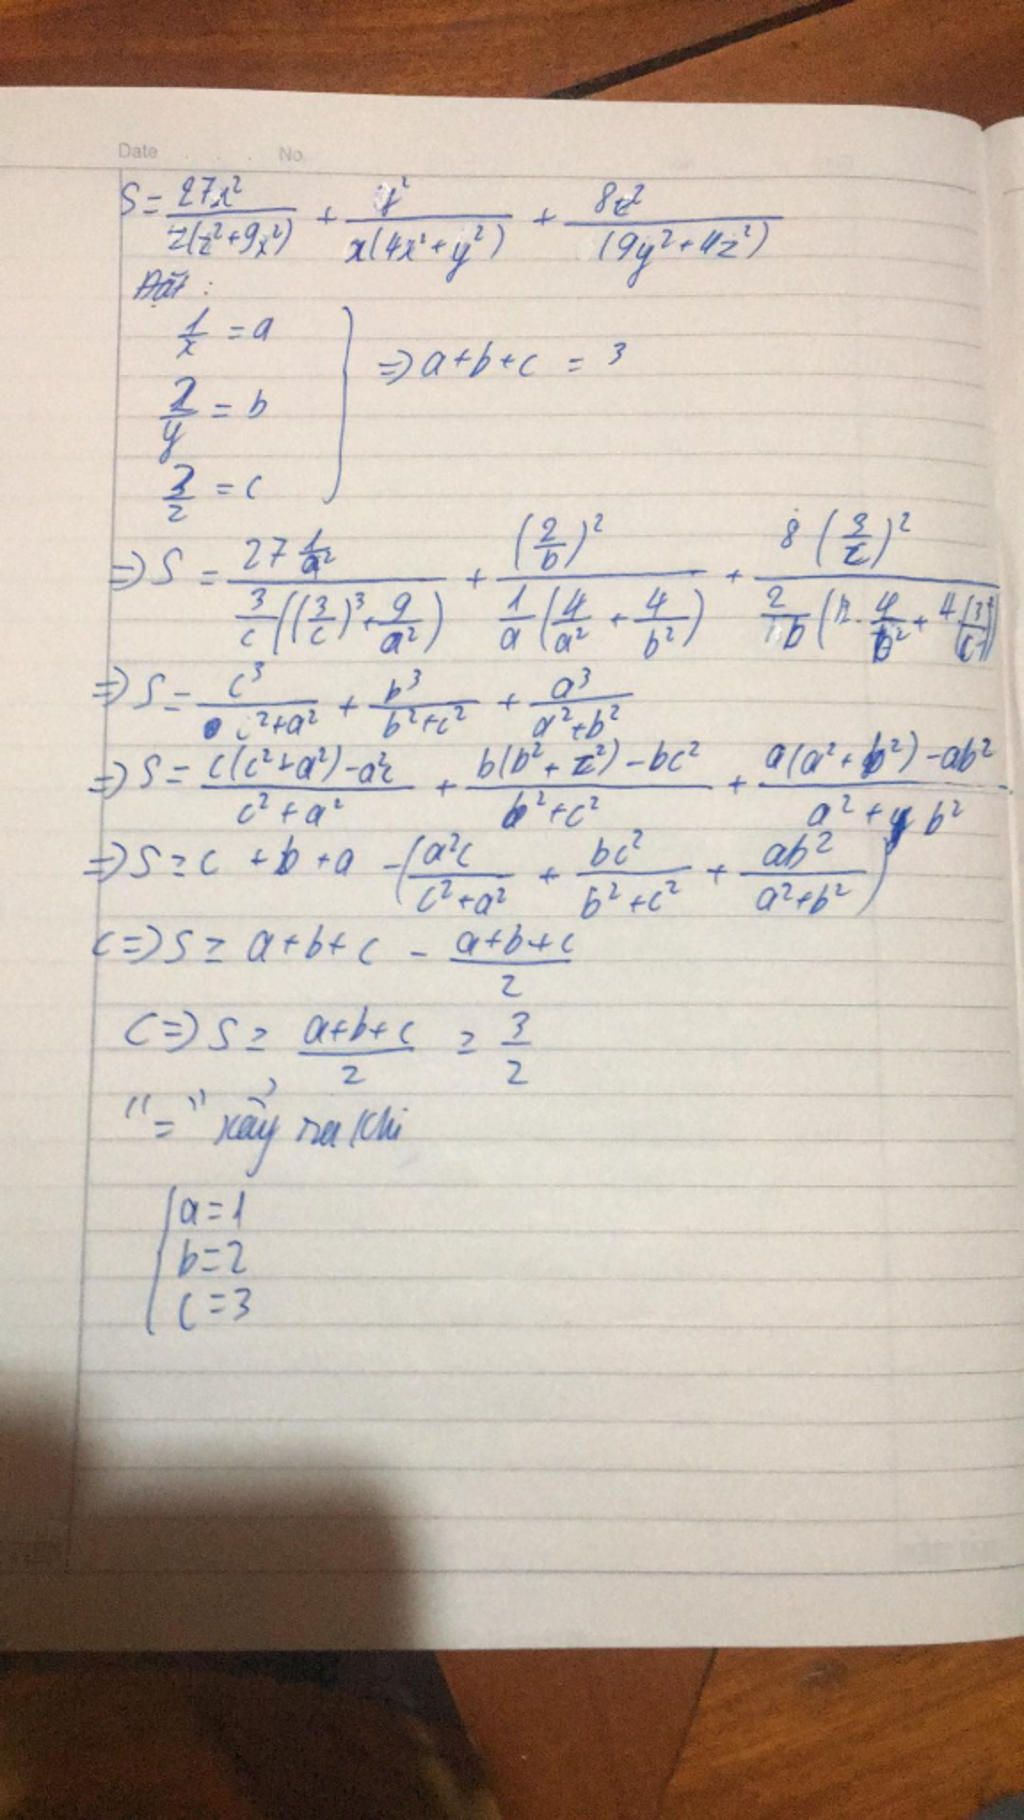 Date . . . No
S = 27x²/(z(z²+9x²)) + y²/(x(4x²+y²)) + 8z²/((9y²+4z²))
Đặt :
1/x = a
2/y = b } => a+b+c = 3
3/z = c
=> S = (27 1/a²)/(3/c((3/c)³+9/a²)) + (2/b)²/(1/a(4/a²+4/b²)) + 8(3/z)²/(2/b( · 4/b²+4(3/c)²))
=> S = c³/(c²+a²) + b³/(b²+c²) + a³/(a²+b²)
=> S = (c(c²+a²)-a²c)/(c²+a²) + (b(b²+z²)-bc²)/(b²+c²) + (a(a²+b²)-ab²)/(a²+b²)
=> S = c + b + a - (a²c/(c²+a²) + bc²/(b²+c²) + ab²/(a²+b²))
<=> S ≥ a+b+c - (a+b+c)/2
<=> S ≥ (a+b+c)/2 ≥ 3/2
"=" xảy ra khi
{ a=1
b=2
c=3